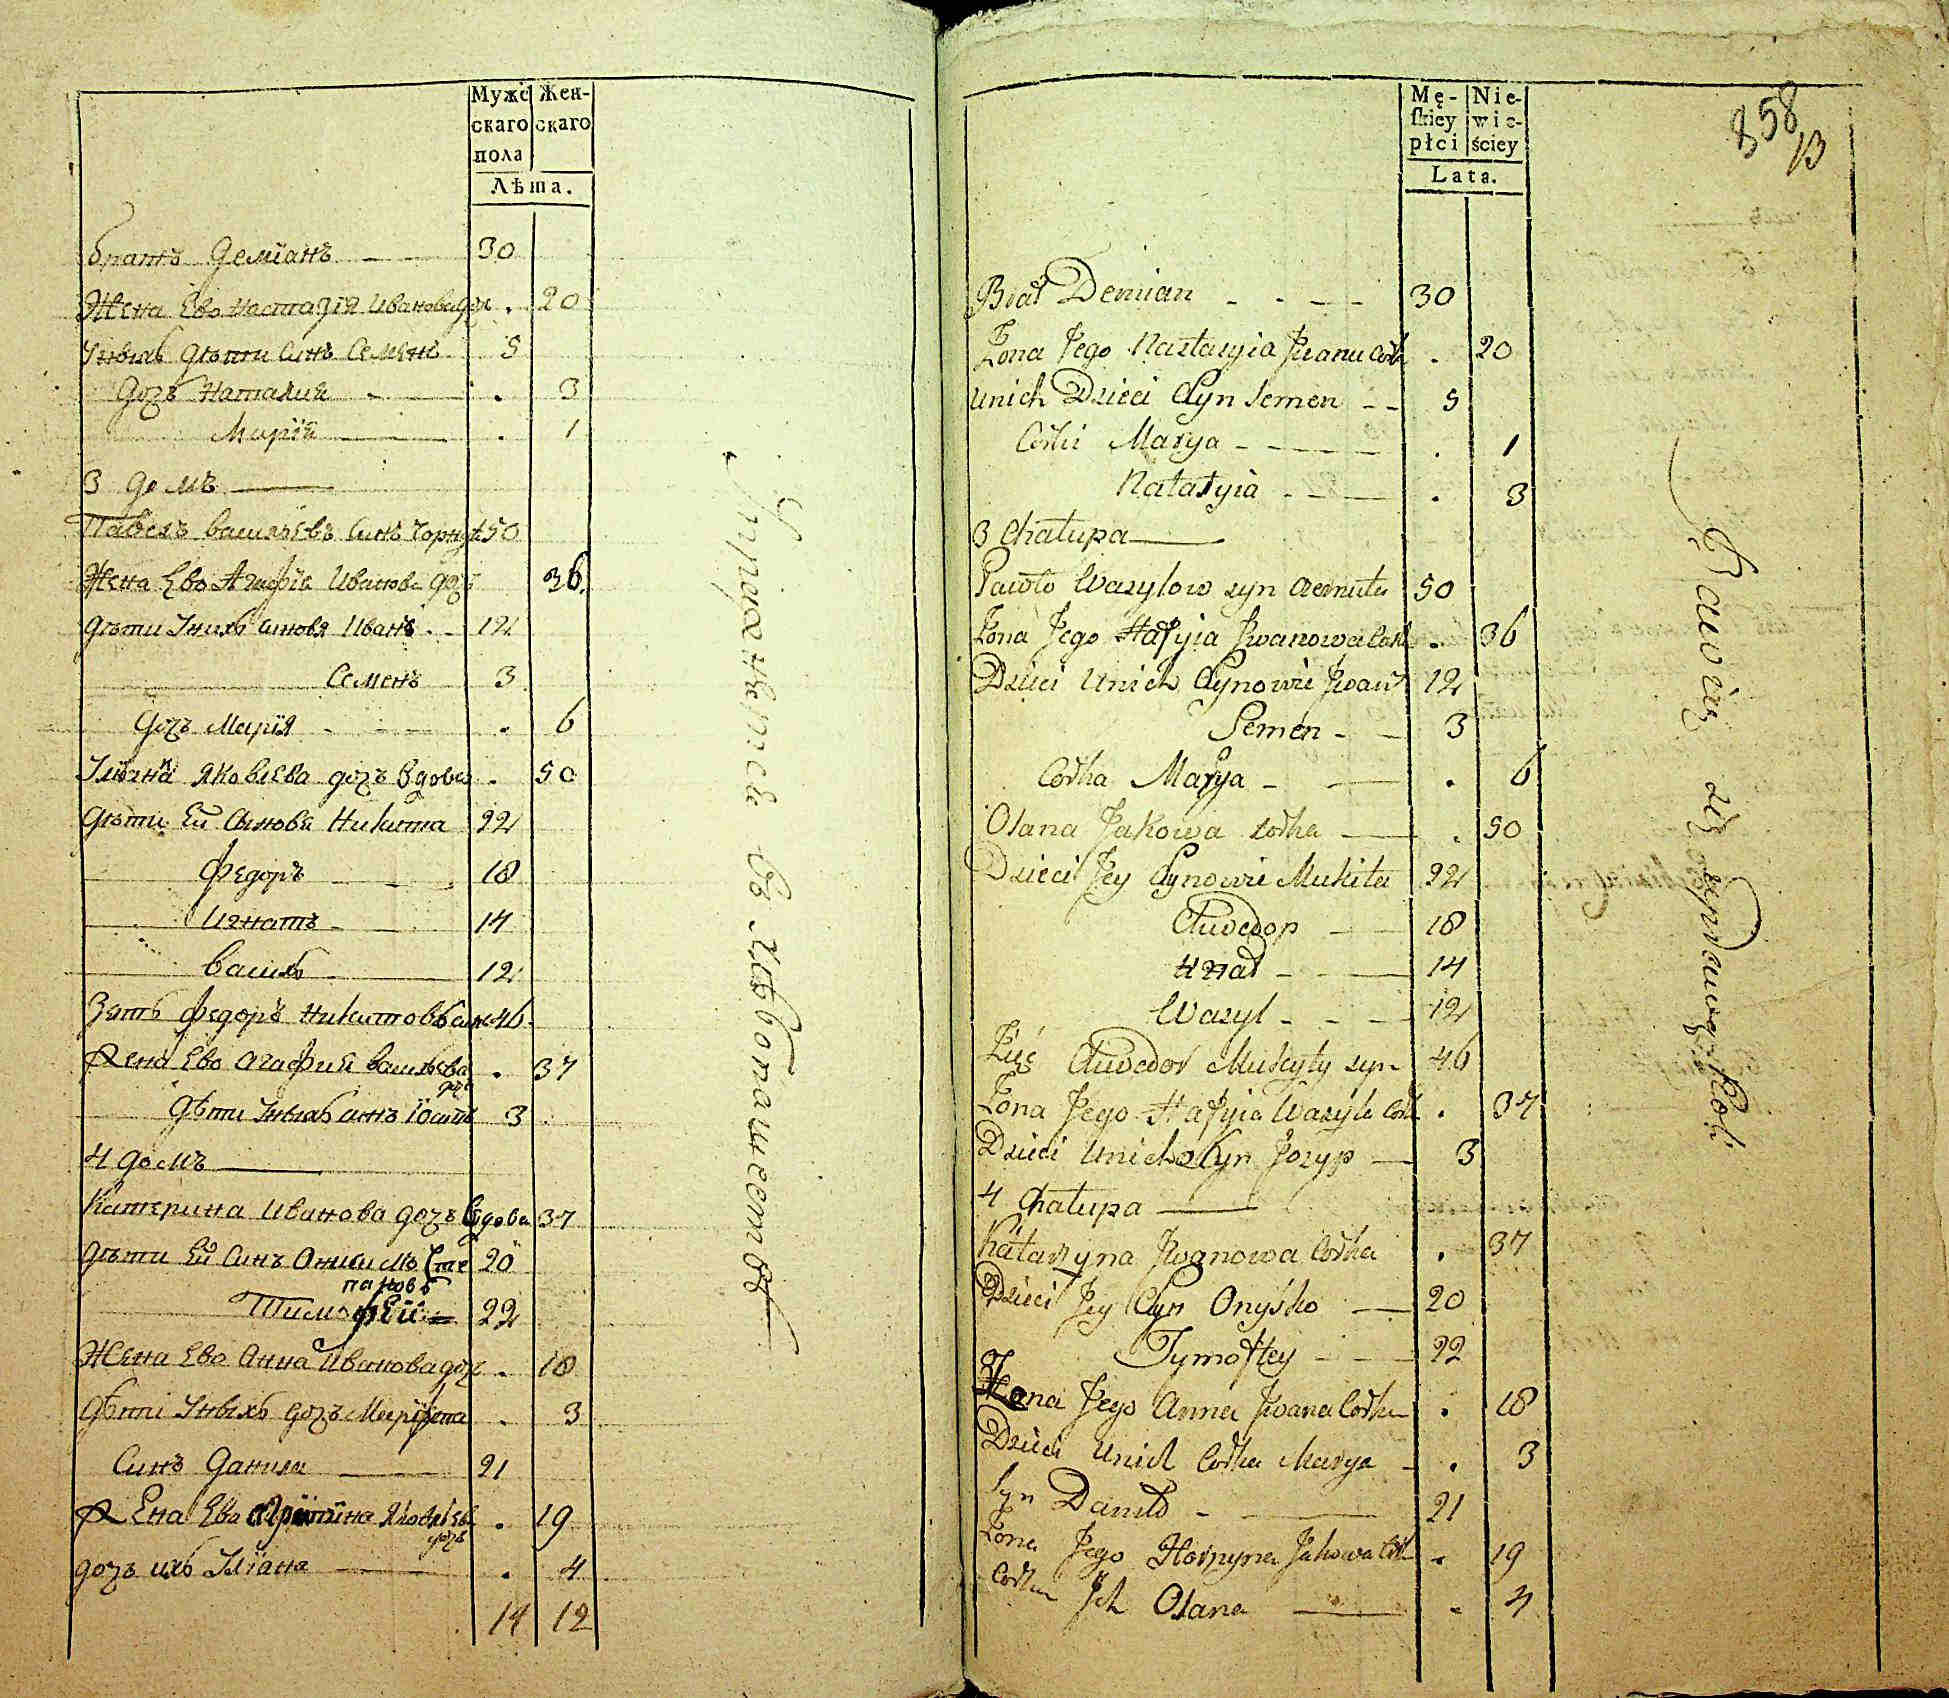 Мужс Жен-
скаго скаго
пола
Лѣта.
братъ Деміанъ 30
Жена Ево Настазія Иванова доч . 20
Унихъ дѣти Синъ Семенъ 5
дочъ Наталия . 3
Марія . 1
3 домъ
Павелъ васильевъ Синъ 50
Жена Ево Агафія Иванова доч 36
дѣти Унихъ синовя Иванъ 12
Семенъ 3
дочъ Марія . 6
Уліяна Яковлева дочъ вдова . 50
дѣти Ей Синовя Никита 22
Федоръ 18
Игнатъ 14
василь 12
Зять Федоръ Никитовъ син 46
Жена Ево Агафия васильева доч . 37
дѣти Унихъ синъ 3
4 домъ
Катерина Иванова дочъ вдова 37
дѣти Ей Синъ Онисимъ Сте 20
пановъ
Тимофей 22
Жена Ево Анна Иванова доч . 18
дѣти Унихъ дочъ Марія . 3
Синъ Данила 21
Жена Ево дочъ . 19
дочъ ихъ Уліана . 4
14 12
въ
Mę- Nie-
skiey wie-
płci ściey
Lata.
858
13
Brat Demian 30
Żona Jego Nastasyia Jwanu Cork . 20
unich Dzieci Syn Semen 5
Corki Marya . 1
Natalyia . 3
3 Chałupa
Pawło Wasylow syn 50
Żona Jego Hafyia Jwanowa Cork . 36
Dzieci Unich Synowie Jwan 12
Semen 3
Corka Marya . 6
Olana Jakowa corka . 50
Dzieci Jey Synowie Mikita 22
Chwedor 18
Hnat 14
Wasyl 12
Chwedor Mikyty syn 46
Żona Jego Hafyia Wasyla Cork . 37
Dzieci Unich Syn Jozyp 3
4 Chałupa
Katarzyna Jwanowa Corka . 37
Dzieci Jey Syn Onyśko 20
Tymoftey 22
Żona Jego Anna Jwana Corka . 18
Dzieci Unich Corka Marya . 3
Syn Daniło 21
Żona Jego Horpyna Jakowa Cork . 19
Corka Jch Olana . 4